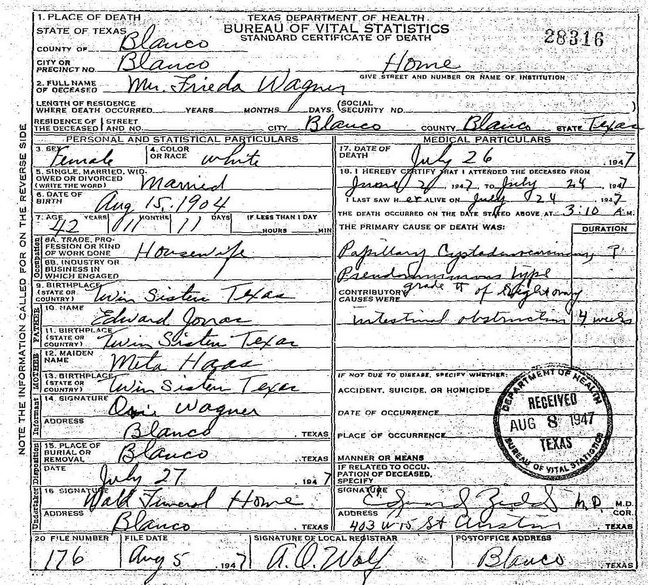 1. PLACE OF DEATH TEXAS DEPARTMENT OF HEALTH
STATE OF TEXAS BUREAU OF VITAL STATISTICS 28316
COUNTY OF Blanco STANDARD CERTIFICATE OF DEATH
CITY OR PRECINCT NO. Blanco Home
GIVE STREET AND NUMBER OR NAME OF INSTITUTION
2. FULL NAME OF DECEASED Mrs. Frieda Wagner
LENGTH OF RESIDENCE WHERE DEATH OCCURRED YEARS MONTHS DAYS (SOCIAL SECURITY NO. )
RESIDENCE OF THE DECEASED STREET AND NO. CITY Blanco COUNTY Blanco STATE Texas
PERSONAL AND STATISTICAL PARTICULARS
3. SEX Female 4. COLOR OR RACE white
5. SINGLE, MARRIED, WIDOWED OR DIVORCED (WRITE THE WORD) Married
6. DATE OF BIRTH Aug 15. 1904
7. AGE 42 YEARS 11 MONTHS 11 DAYS IF LESS THAN 1 DAY HOURS MIN
Occupation
8A. TRADE, PROFESSION OR KIND OF WORK DONE Housewife
8B. INDUSTRY OR BUSINESS IN WHICH ENGAGED
9. BIRTHPLACE (STATE OR COUNTRY) Twin Sisters Texas
FATHER
10. NAME Edward Jonas
11. BIRTHPLACE (STATE OR COUNTRY) Twin Sisters Texas
MOTHER
12. MAIDEN NAME Meta Haas
13. BIRTHPLACE (STATE OR COUNTRY) Twin Sisters Texas
Informant
14. SIGNATURE Wagner
ADDRESS Blanco TEXAS
Disposition
15. PLACE OF BURIAL OR REMOVAL Blanco TEXAS
DATE July 27 1947
Undertaker
16. SIGNATURE Funeral Home
ADDRESS Blanco TEXAS
MEDICAL PARTICULARS
17. DATE OF DEATH July 26 1947
18. I HEREBY CERTIFY THAT I ATTENDED THE DECEASED FROM
June 1947 TO July 24 1947
I LAST SAW H er ALIVE ON July 24 1947
THE DEATH OCCURRED ON THE DATE STATED ABOVE AT 3:10 A.M.
THE PRIMARY CAUSE OF DEATH WAS: DURATION
Papillary ?
type
CONTRIBUTORY CAUSES WERE grade II of
intestinal obstruction 4 weeks
IF NOT DUE TO DISEASE, SPECIFY WHETHER:
ACCIDENT, SUICIDE, OR HOMICIDE
DATE OF OCCURRENCE
PLACE OF OCCURRENCE
MANNER OR MEANS
IF RELATED TO OCCUPATION OF DECEASED, SPECIFY
SIGNATURE M.D. M.D. COR.
ADDRESS 403 W 15 St Austin TEXAS
DEPARTMENT OF HEALTH
RECEIVED
AUG 8 1947
TEXAS
BUREAU OF VITAL STATISTICS
20 FILE NUMBER FILE DATE SIGNATURE OF LOCAL REGISTRAR POSTOFFICE ADDRESS
176 Aug 5 1947 A. O. Wolf Blanco TEXAS
NOTE THE INFORMATION CALLED FOR ON THE REVERSE SIDE